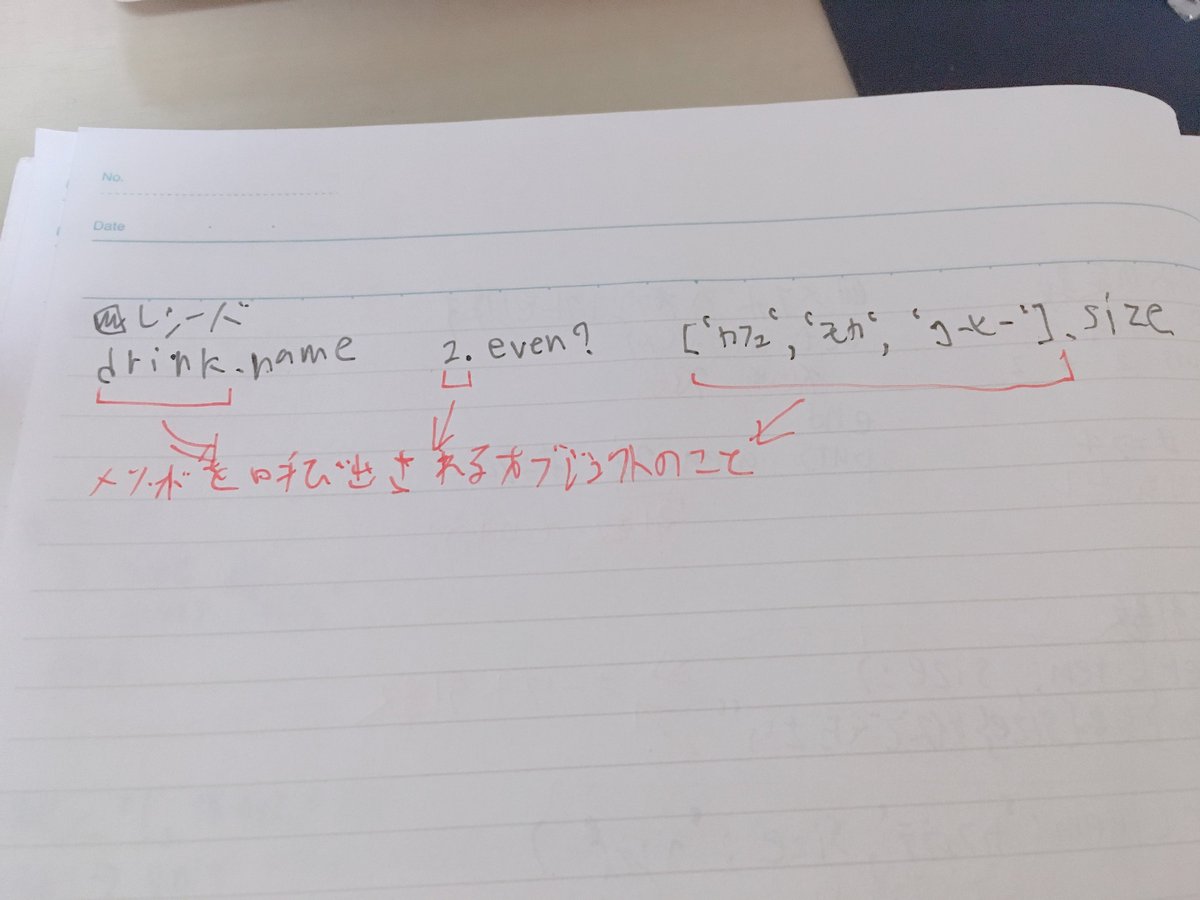 No.
Date
レシーバ
drink.name 2.even? ['カフェ', 'モカ', 'コーヒー'].size
メソッドを呼び出されるオブジェクトのこと